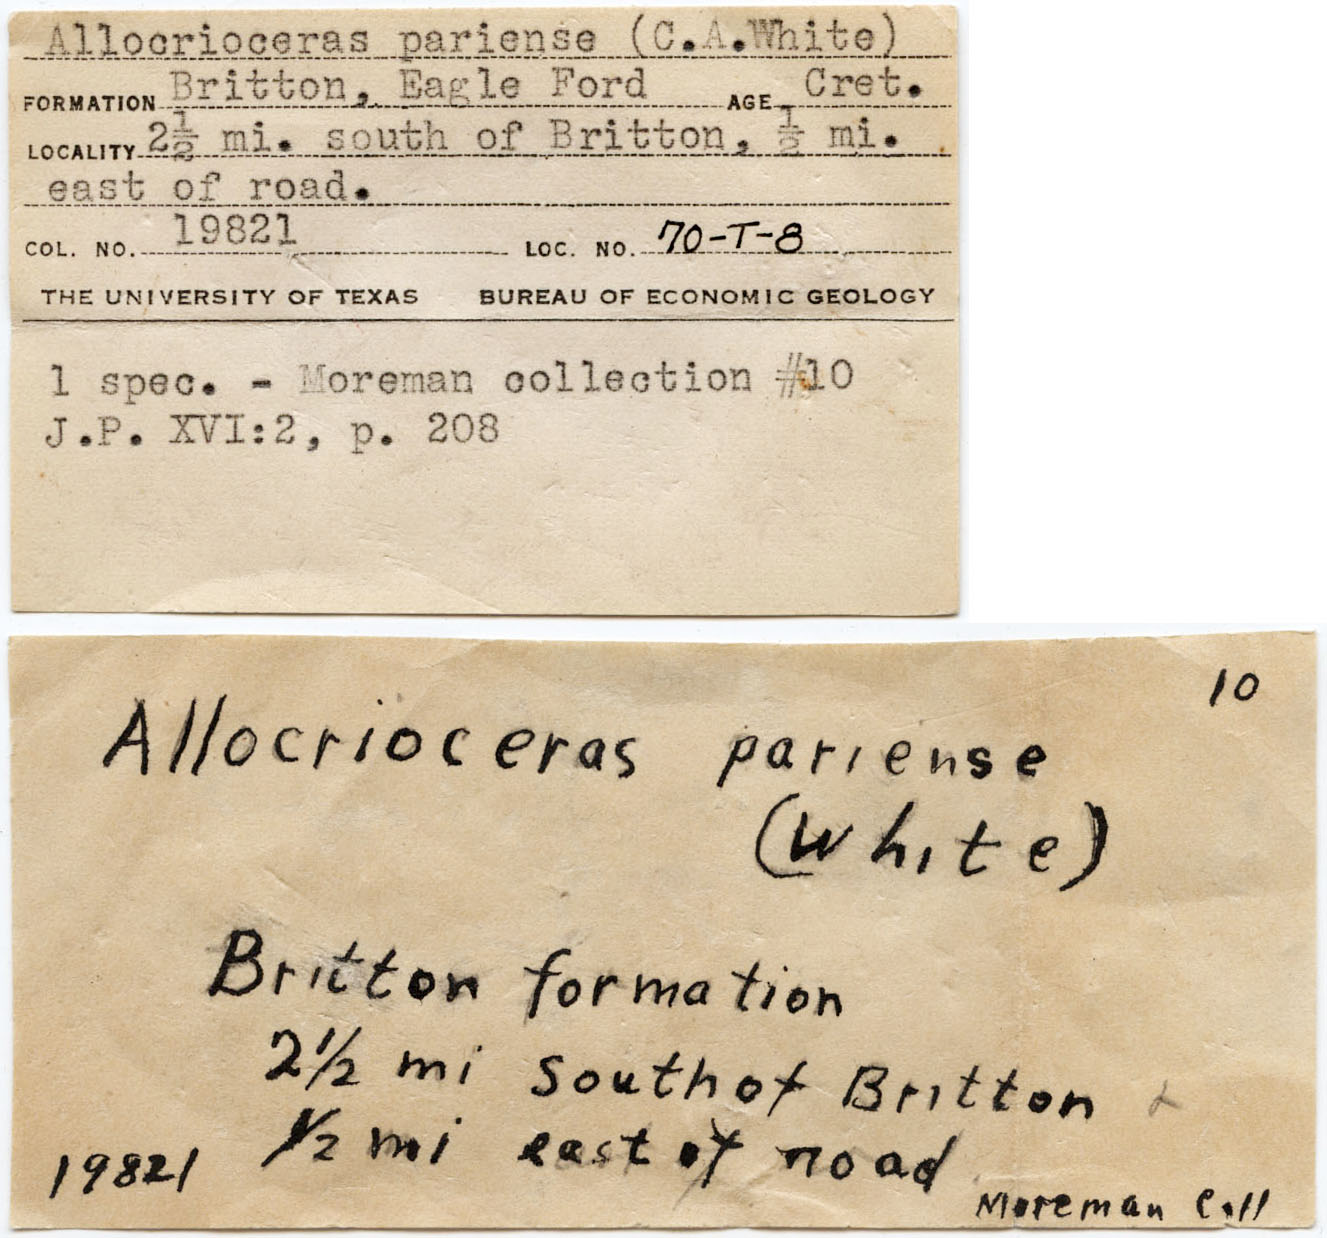 Allocrioceras pariense (C.A.White)
FORMATION Britton, Eagle Ford AGE Cret.
LOCALITY 2½ mi. south of Britton, ½ mi.
east of road.
COL. NO. 19821 LOC. NO. 70-T-8
THE UNIVERSITY OF TEXAS BUREAU OF ECONOMIC GEOLOGY
1 spec. - Moreman collection #10
J.P. XVI:2, p. 208
10
Allocrioceras pariense
(White)
Britton formation
2½ mi south of Britton &
½ mi east of road
19821
Moreman Coll